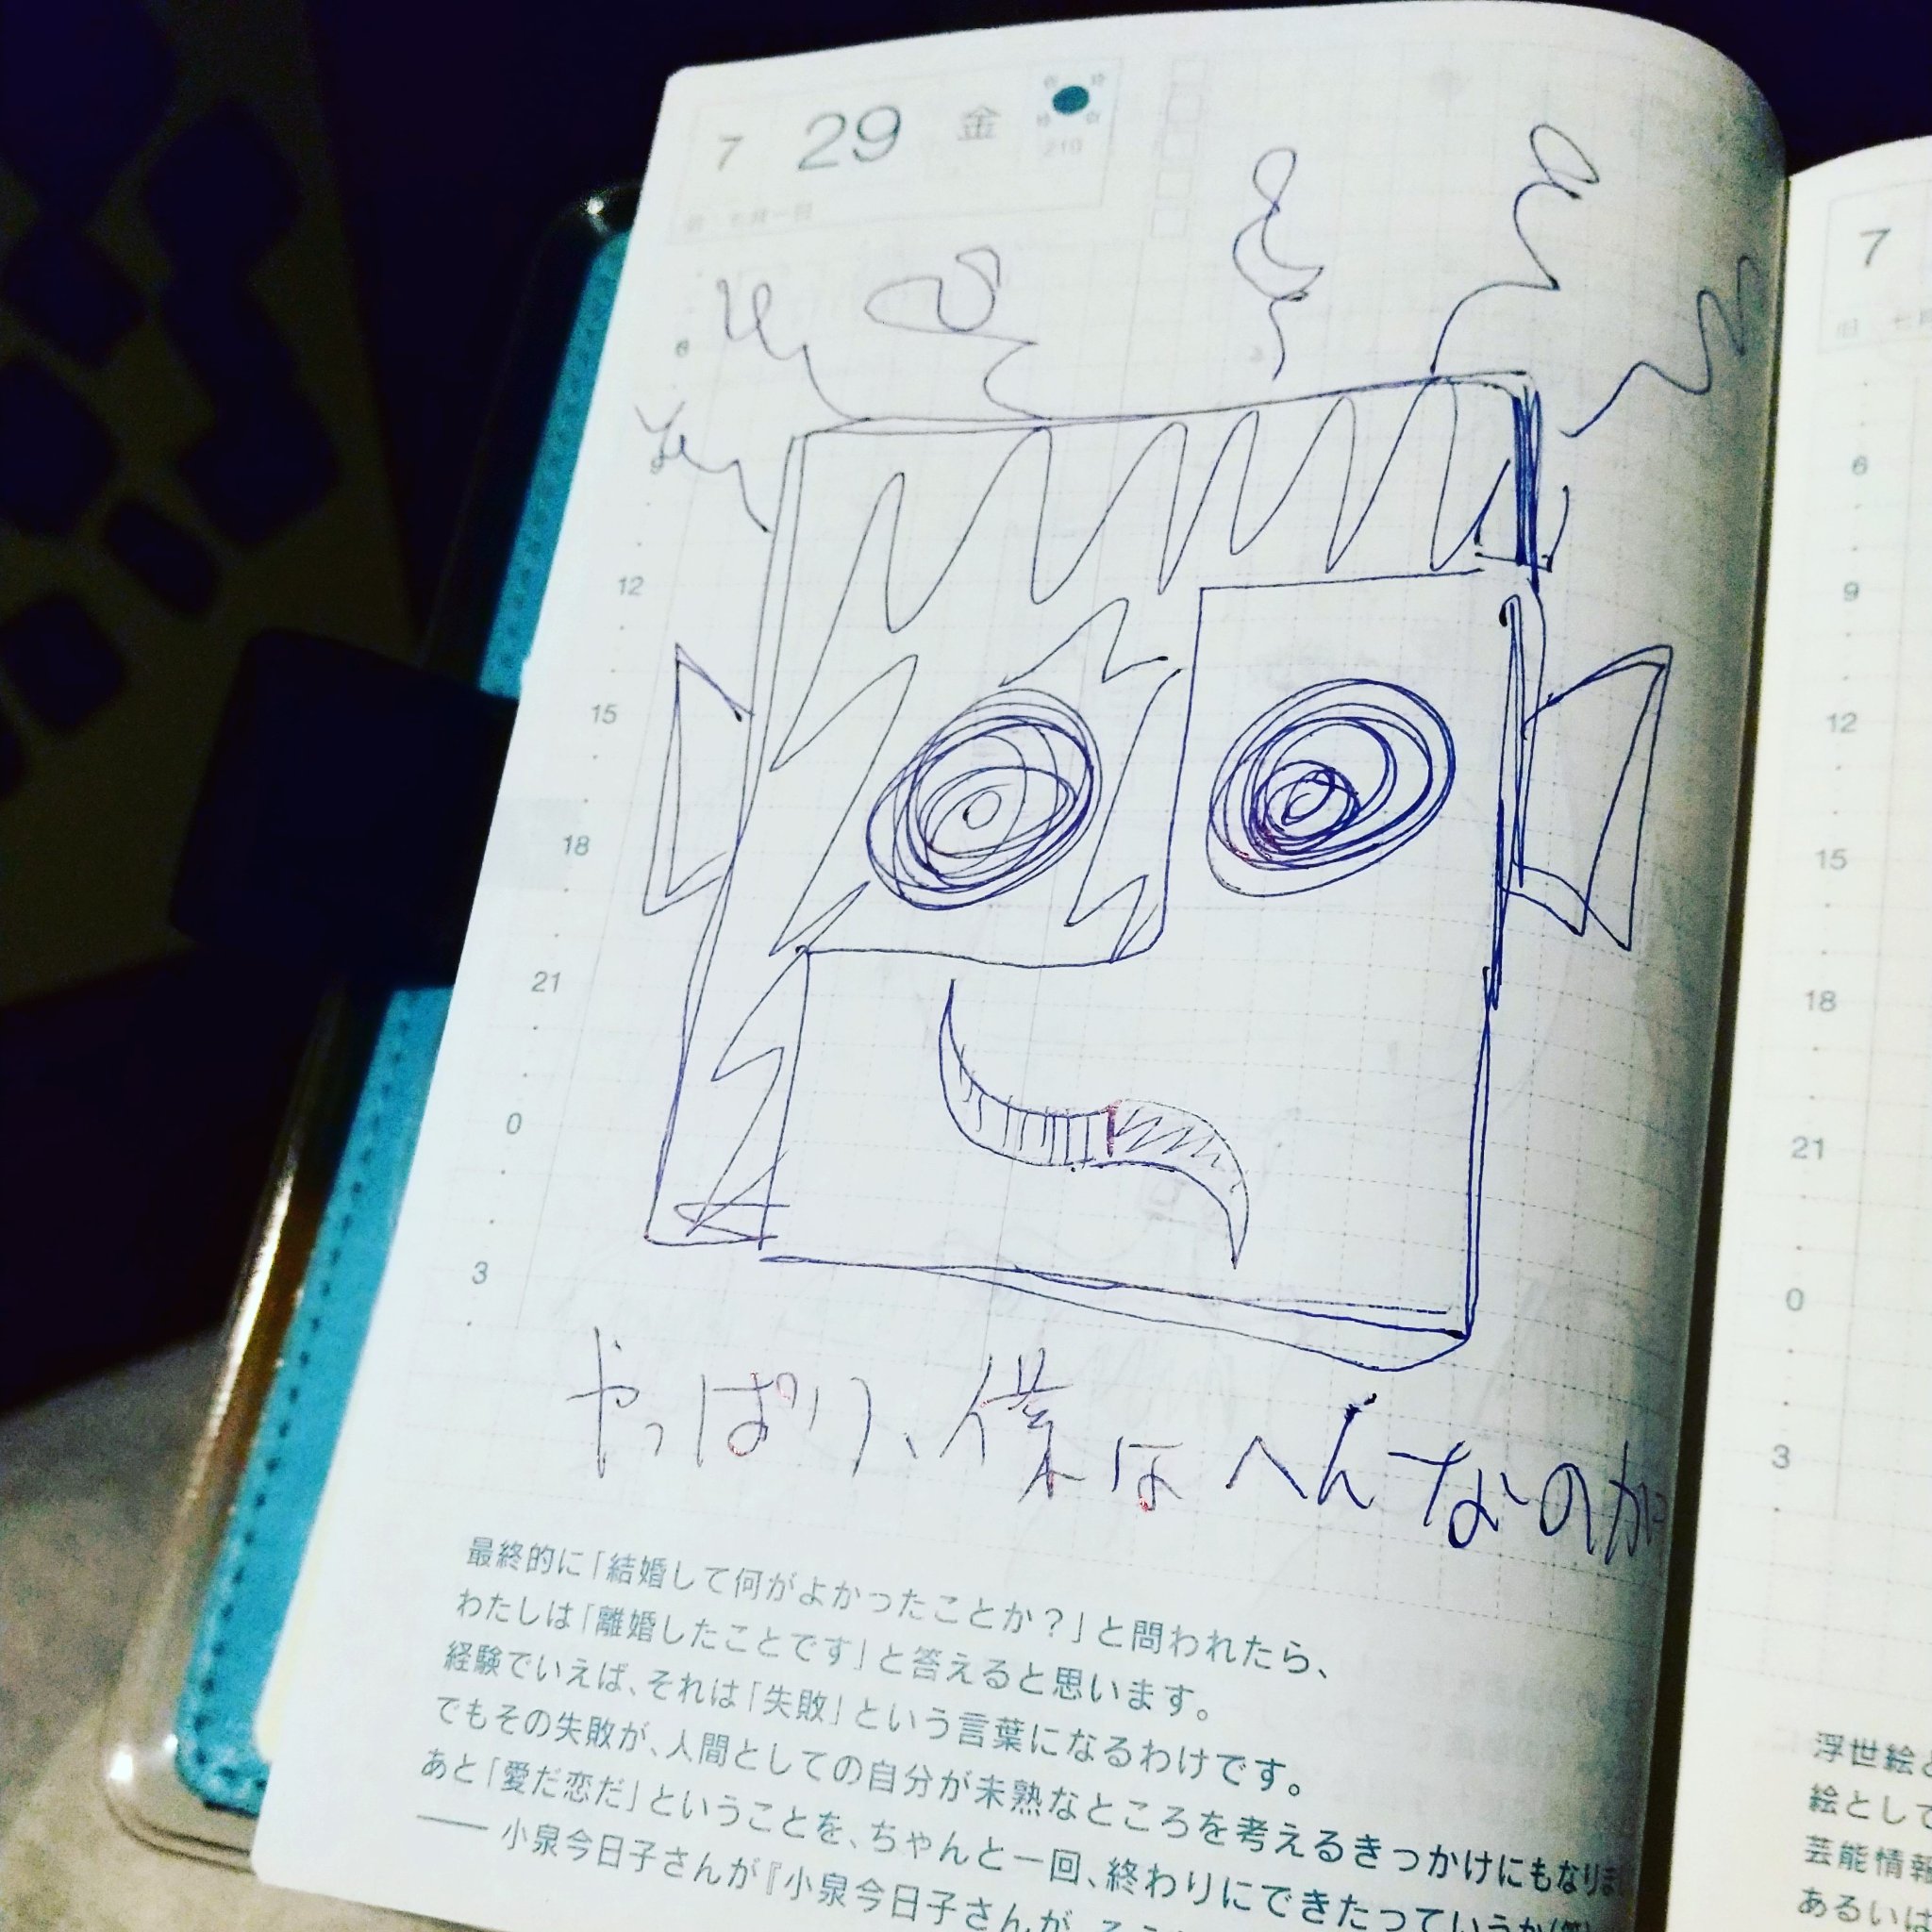 7 29 金
210
6
12
15
18
21
0
3
やっぱり、僕はへんなのか
最終的に「結婚して何がよかったことか?」と問われたら、
わたしは「離婚したことです」と答えると思います。
経験でいえば、それは「失敗」という言葉になるわけです。
でもその失敗が、人間としての自分が未熟なところを考えるきっかけにもなりま
あと「愛だ恋だ」ということを、ちゃんと一回、終わりにできたっていうか(笑)
—— 小泉今日子さんが『小泉今日子さんが、
7
6
9
12
15
18
21
0
3
浮世絵と
絵として
芸能情報
あるいは